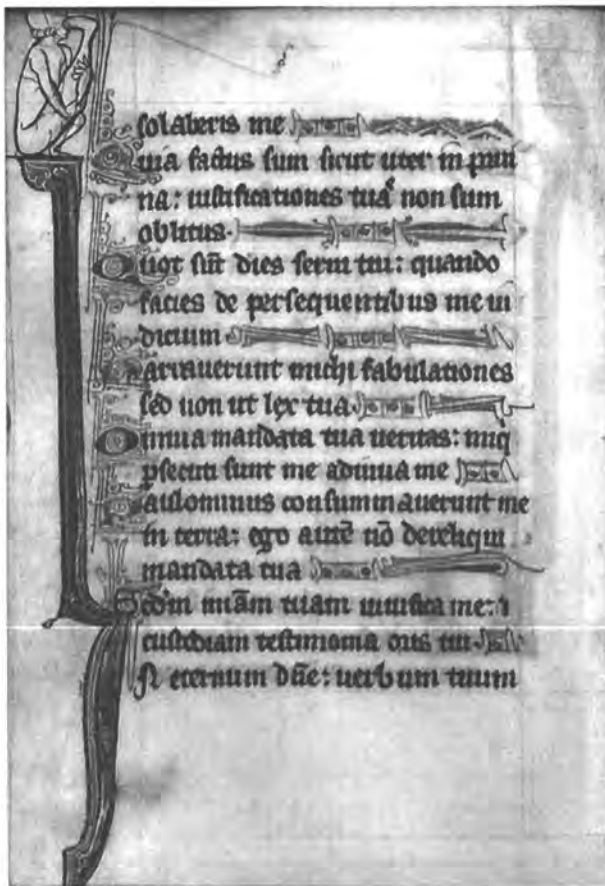 solaberis me
Quia factus sum sicut uter in prui
na: iustificationes tuas non sum
oblitus.
Quot sūt dies serui tui: quando
facies de persequentibus me iu
dicium
Narrauerunt michi fabulationes
sed non ut lex tua
Omnia mandata tua ueritas: iniq
psecuti sunt me adiuua me
Paulominus consummauerunt me
in terra: ego autē nō dereliqui
mandata tua
Scdm miam tuam uiuifica me: ⁊
custodiam testimonia oris tui
In eternum dn̄e: uerbum tuum